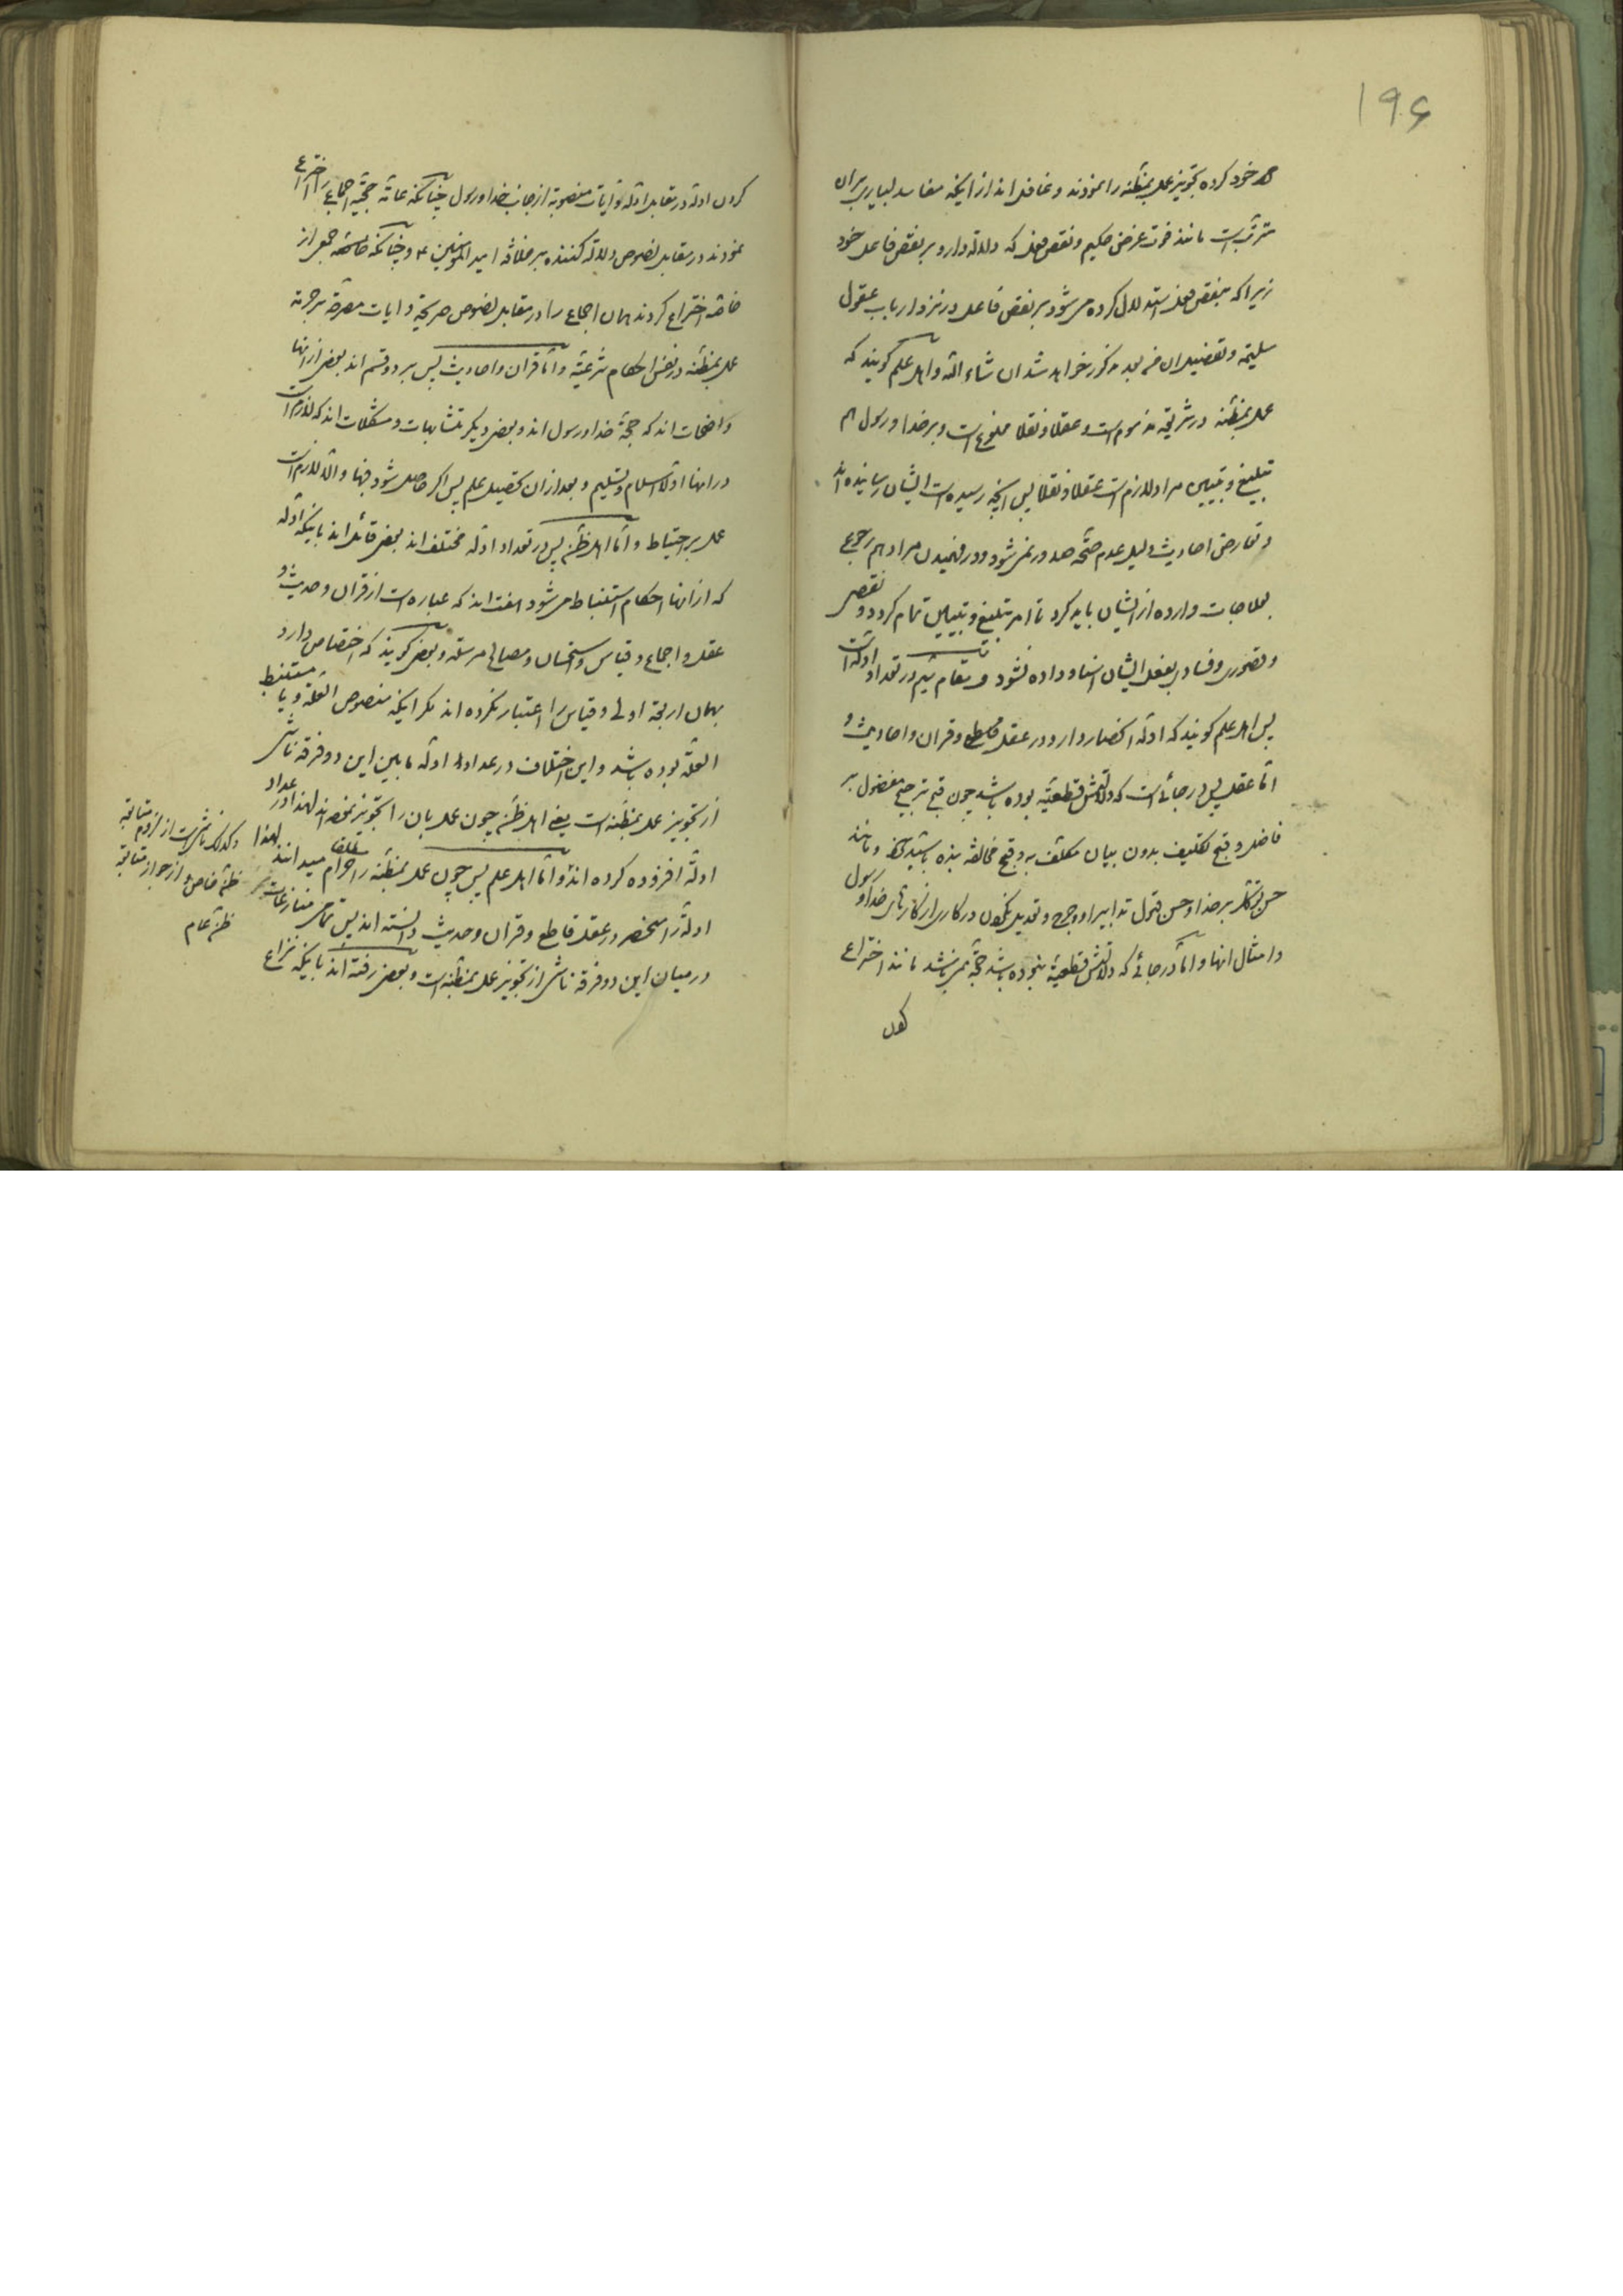 ۱۹۶
خود کرده تجویز عمل بمظنّه را نمودند و غافل اند از اینکه مفاسد بسیاری بران
مترتّب است مانند فوت غرض حکیم و نقص فعل که دلالة دارد بر نقص فاعل خود
زیرا که بنقص فعل استدلال کرده می شود بر نقص فاعل در نزد ارباب عقول
سلیمه و تفصیل ان من بعد مذکور خواهد شد ان شاء الله و اهل علم گویند که
عمل بمظنّه در شریعة مذموم است و عقلا و نقلا ممنوع است و بر خدا و رسول هم
تبلیغ و تبیین مراد لازم است عقلا و نقلا پس انچه رسیده است ایشان رسانیده اند
و تعارض احادیث دلیل عدم صحّة صدور نمی شود و در فهمیدن مراد هم رجوع
بعلاجات وارده از ایشان باید کرد تا امر تبلیغ و تبیین تمام گردد و نقصی
و قصوری و فسادی بفعل ایشان اسناد داده نشود و مقام سیّم در تعداد ادلّه است
پس اهل علم گویند که ادلّه انحصار دارد در عقل قاطع و قران و احادیث و
امّا عقل پس در جائی است که دلالتش قطعیّه بوده باشد چون قبح ترجیح مفضول بر
فاضل و قبح تکلیف بدون بیان مکلّف به و قبح مخالفة بنده با سیّد خود و مانند
حسن توکّل بر خدا و حسن قبول تدابیر او و جرح و تعدیل نکردن در کاری از کارهای خدا و رسول
و امثال انها و امّا در جائی که دلالتش قطعیّه نبوده باشد حجّة نمی باشد مانند اختراع
کردن
کردن ادلّه در مقابل ادلّه و ایات منصوبه از جانب خدا و رسول چنانکه عامّه حجّیّة اجماع را اختراع
نمودند در مقابل نصوص دلالة کننده بر خلافة امیر المؤمنین ع و چنانکه طائفه جمعی از
خاصّه اختراع کردند همان اجماع را در مقابل نصوص صریحة و ایات مصرّحة بر حرمة
عمل بمظنّه در نفس احکام شرعیّه و امّا قران و احادیث پس بر دو قسم اند بعضی از انها
واضحات اند که حجّة خدا و رسول اند و بعضی دیگر متشابهات و مشکلات اند که لازم است
در انها اوّلا اسلام و تسلیم و بعد از ان تحصیل علم پس اگر حاصل شود فبها و الّا لازم است
عمل بر احتیاط و امّا اهل ظنّ پس در تعداد ادلّه مختلف اند بعضی قائل اند باینکه ادلّه
که از انها احکام استنباط می شود هفت اند که عباره است از قران و حدیث و
عقل و اجماع و قیاس و استحسان و مصالح مرسله و بعضی گویند که اختصاص دارد
بهمان اربعة اولی و قیاس را اعتبار نکرده اند مگر اینکه منصوص العلّة و یا مستنبط
العلّة بوده باشد و این اختلاف در عدد ادلّه ما بین این دو فرقه ناشی
از تجویز عمل بمظنّه است یعنی اهل ظنّ چون عمل بان را تجویز نموده اند لهذا در عداد
ادلّه افزوده کرده اند و امّا اهل علم پس چون عمل بمظنّه را مطلقا حرام میدانند لهذا
ادلّه را منحصر در عقل قاطع و قران و حدیث دانسته اند پس تمامی منازعات
در میان این دو فرقه ناشی از تجویز عمل بمظنّه است و بعضی رفته اند باینکه نزاع
و کذلک ناشی است از لزوم متابعة
ظنّ خاصّ و از جواز متابعة
ظنّ عام